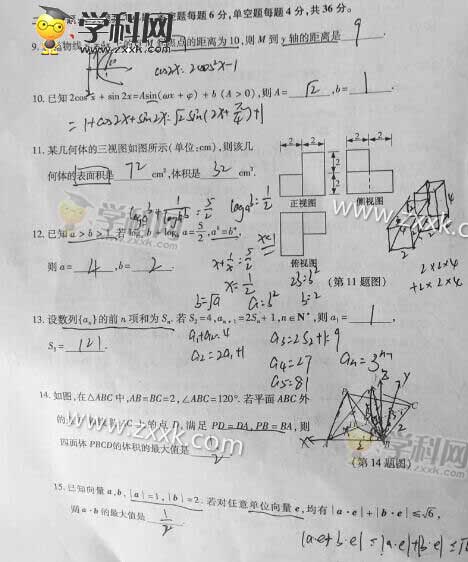 每题6分,单空题每题4分,共36分。
9. 的距离为10,则M到y轴的距离是 9
cos2x=2cos²x-1
10. 已知2cos²x+sin2x=Asin(ωx+φ)+b(A>0),则A= √2 ,b= 1 .
=1+cos2x+sin2x=√2sin(2x+π/4)+1
11. 某几何体的三视图如图所示(单位:cm),则该几
何体的表面积是 72 cm²,体积是 32 cm³.
2 2 2 2
2
2
正视图 侧视图
俯视图
(第11题图)
2×2×4
+2×2×4
12. 已知a>b>1.若 =5/2,aᵇ=bᵃ,
则a= 4 ,b= 2 .
x+1/x=5/2
x=1/2
b=√a a=b² 2b=b² b=2
13. 设数列{aₙ}的前n项和为Sₙ.若S₂=4,aₙ₊₁=2Sₙ+1,n∈N*,则a₁= 1 ,
S₅= 121 .
a₁+a₂=4
a₂=2a₁+1
a₃=2S₂+1=9
a₄=27
a₅=81
14. 如图,在△ABC中,AB=BC=2,∠ABC=120°.若平面ABC外
的 的点D,满足PD=DA,PB=BA,则
四面体PBCD的体积的最大值是 1/2
(第14题图)
15. 已知向量a,b,|a|=1,|b|=2.若对任意单位向量e,均有|a·e|+|b·e|≤√6,
则a·b的最大值是 1/2
学科网
www.zxxk.com